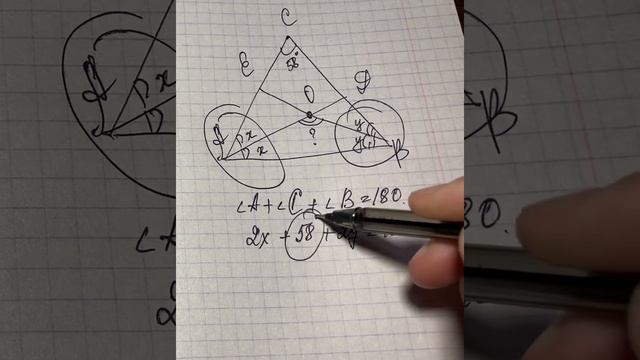 C
58°
E
D
O
x
y
A
x
?
y
B
∠A + ∠C + ∠B = 180.
2x + 58 + 2y =